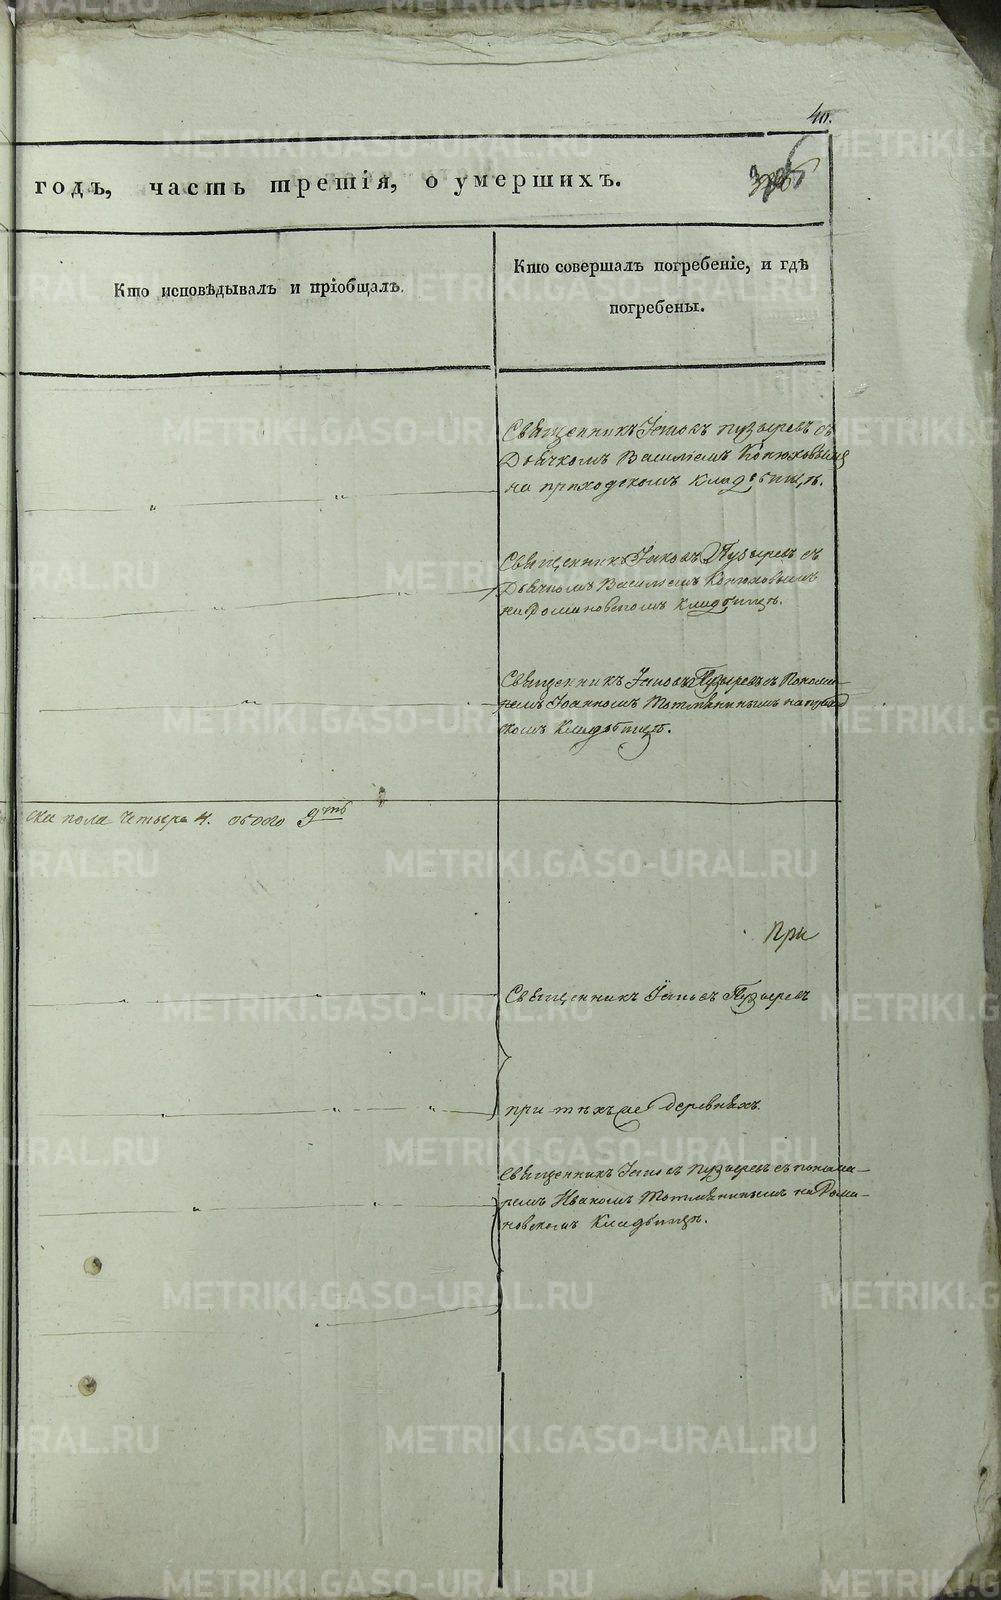 40.
годъ, часть третія, о умершихъ.
Кто исповѣдывалъ и пріобщалъ.
Кто совершалъ погребеніе, и гдѣ
погребены.
Священникъ Іаковъ Пузыревъ съ
Дьячкомъ Василіемъ Конюховымъ
на приходскомъ кладбищѣ.
Священникъ Іаковъ Пузыревъ съ
Дьячкомъ Василіемъ Конюховымъ
на Романовскомъ кладбищѣ.
Священникъ Іаковъ Пузыревъ съ Понома-
ремъ Іоанномъ Тотмянинымъ на приход
скомъ Кладбищѣ.
ска пола четыре 4. обоего 9ть
При
Священникъ Іаковъ Пузыревъ
при тѣхъ же деревняхъ.
Священникъ Іаковъ Пузыревъ съ понома-
ремъ Иваномъ Тотмянинымъ на Рома-
новскомъ Кладбищѣ.
METRIKI.GASO-URAL.RU